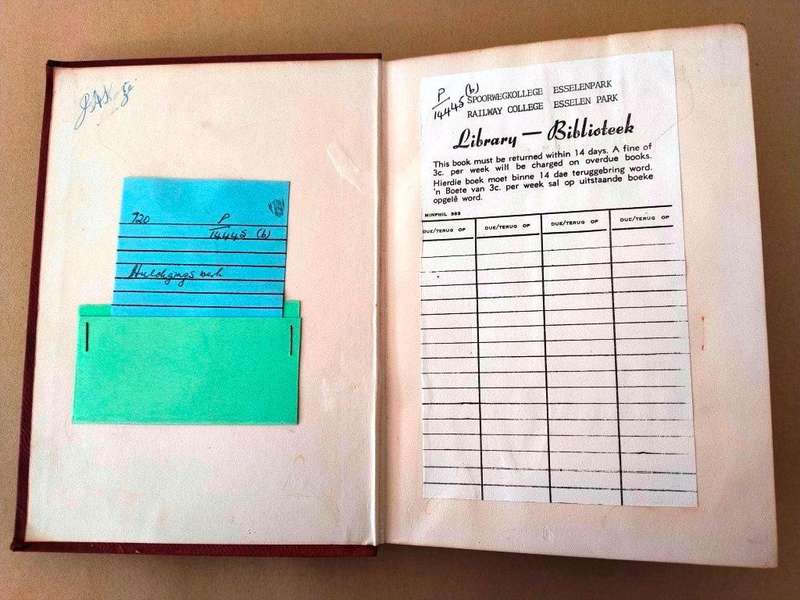 720
P
14445 (b)
Huldigings
P
14445 (b)
SPOORWEGKOLLEGE ESSELENPARK
RAILWAY COLLEGE ESSELEN PARK
Library — Biblioteek
This book must be returned within 14 days. A fine of
3c. per week will be charged on overdue books.
Hierdie boek moet binne 14 dae teruggebring word.
'n Boete van 3c. per week sal op uitstaande boeke
opgelê word.
MINPHIL 953
DUE/TERUG OP DUE/TERUG OP DUE/TERUG OP DUE/TERUG OP